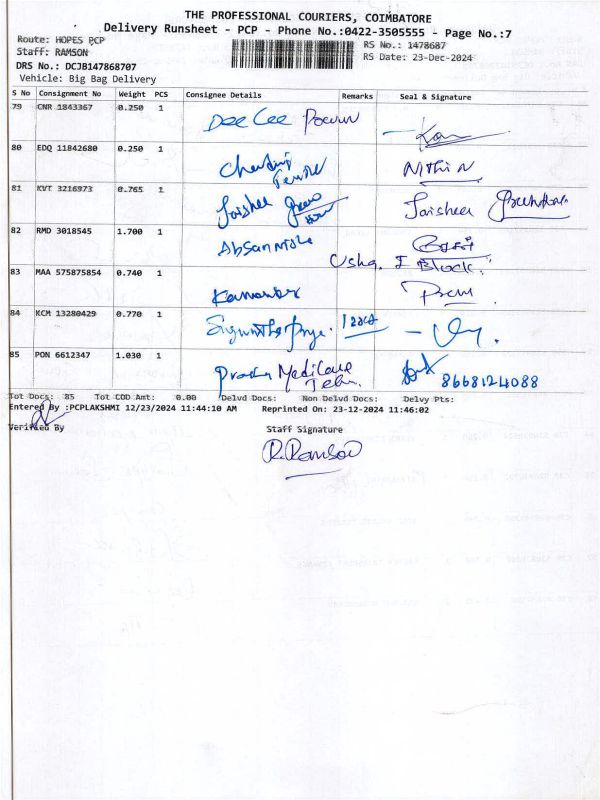 THE PROFESSIONAL COURIERS, COIMBATORE
Delivery Runsheet - PCP - Phone No.:0422-3505555 - Page No.:7
Route: HOPES PCP
RS No.: 1478687
Staff: RAMSON
RS Date: 23-Dec-2024
DRS No.: DCJB147868707
Vehicle: Big Bag Delivery
S No Consignment No Weight PCS Consignee Details Remarks Seal & Signature
79 CNR 1843367 0.250 1 Dee Cee
80 EDQ 11842680 0.250 1 Nithin
81 KVT 3216973 0.765 1 Jaishee Jaisheer
82 RMD 3018545 1.700 1
Usha. I Block.
83 MAA 575875854 0.740 1 Prem
84 KCM 13280429 0.770 1
85 PON 6612347 1.030 1 Medicare
8668124088
Tot Docs: 85 Tot COD Amt: 0.00 Delvd Docs: Non Delvd Docs: Delvy Pts:
Entered By :PCPLAKSHMI 12/23/2024 11:44:10 AM Reprinted On: 23-12-2024 11:46:02
Verified By Staff Signature
R.Ramson